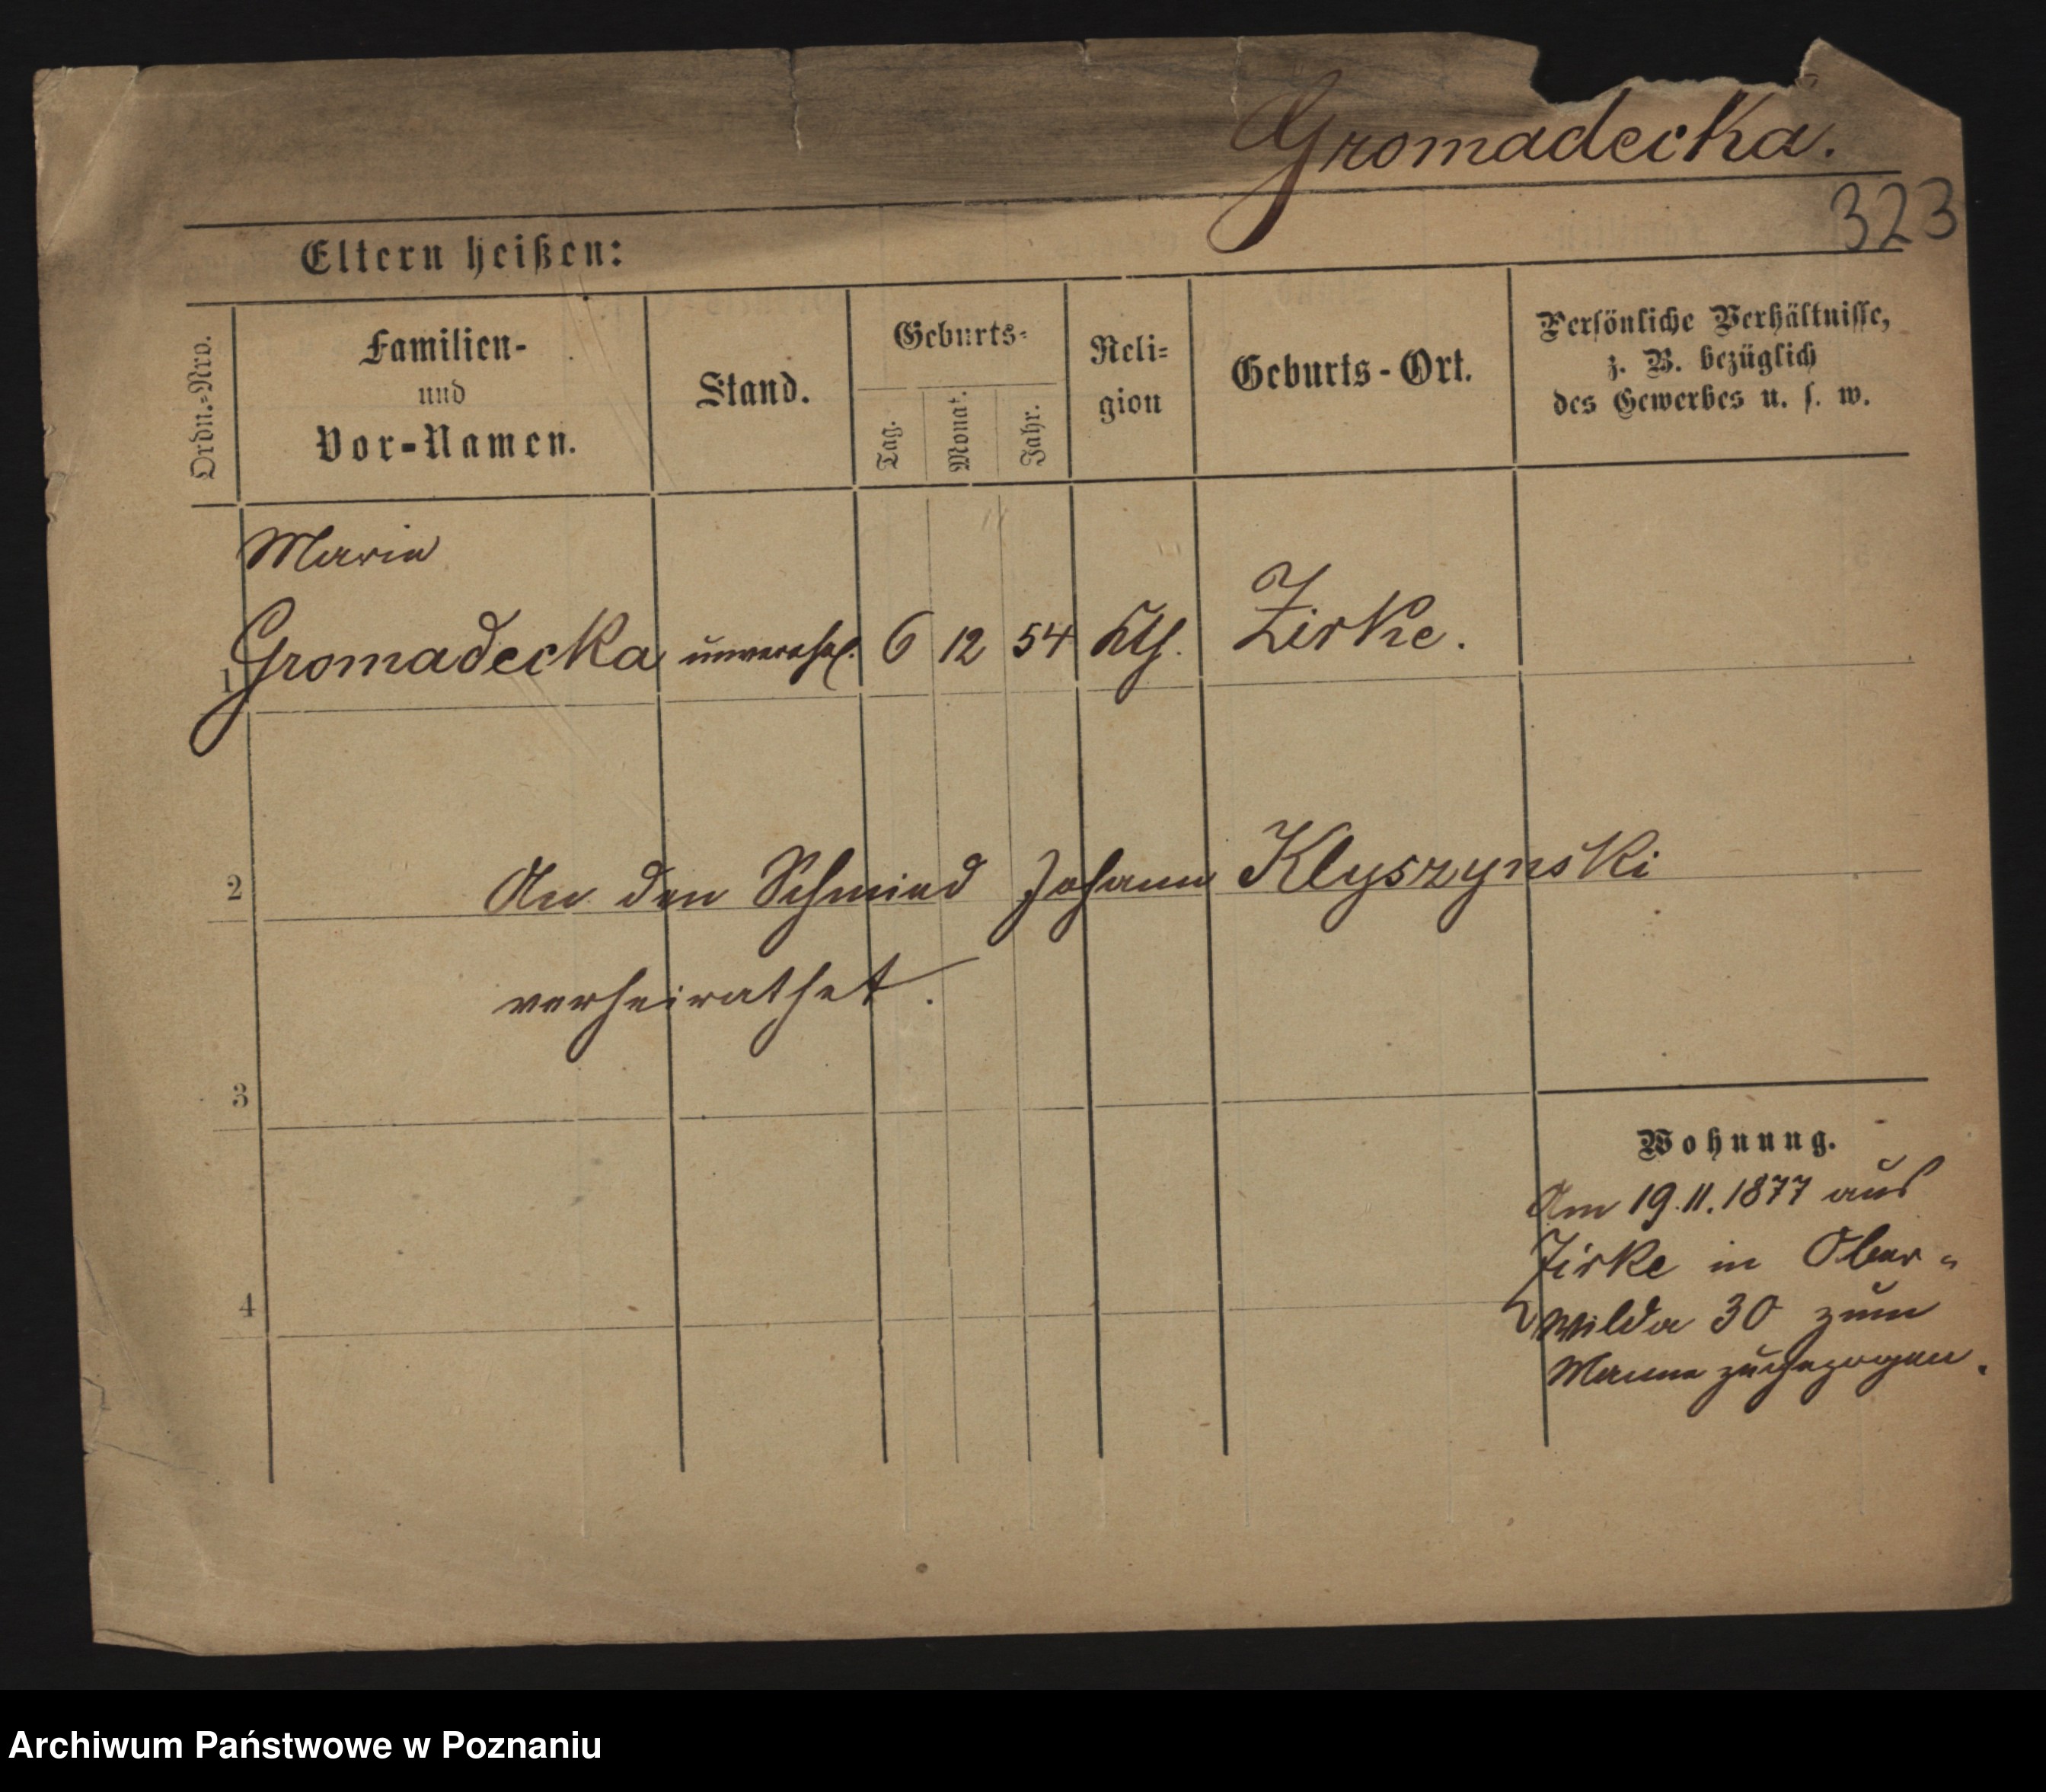 Gromadecka.
323
Eltern heißen:
Ordn.-Nro.
Familien-
und
Vor-Namen.
Stand.
Geburts-
Tag.
Monat.
Jahr.
Reli-
gion
Geburts-Ort.
Persönliche Verhältnisse,
z. B. bezüglich
des Gewerbes u. s. w.
Marie
1 Gromadecka unverehel. 6 12 54 kth. Zirke.
2 An den Schmied Johann Klyszynski
verheirathet.
3
Wohnung.
Am 19.11.1877 aus
Zirke in Ober-
4 wilda 30 zum
Manne zugezogen.
Archiwum Państwowe w Poznaniu